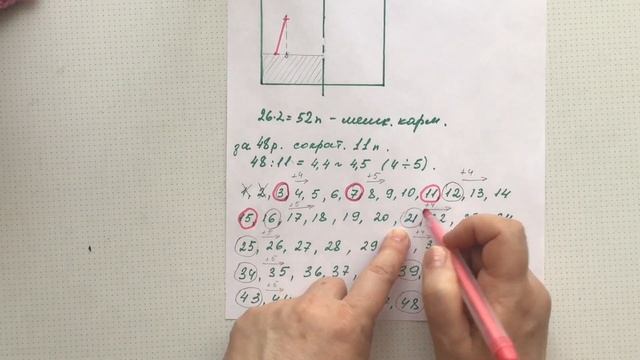 26·2=52п - мешк. карм.
за 48р. сократ. 11п.
48:11=4,4≈4,5 (4÷5).
+4 +4
1, 2, 3, 4, 5, 6, 7, 8, 9, 10, 11, 12, 13, 14
+5 +5 +4
15, 16, 17, 18, 19, 20, 21, 22
+5 +4
25, 26, 27, 28, 29
+5
34, 35, 36, 37, 39
+5
43, 44, 48